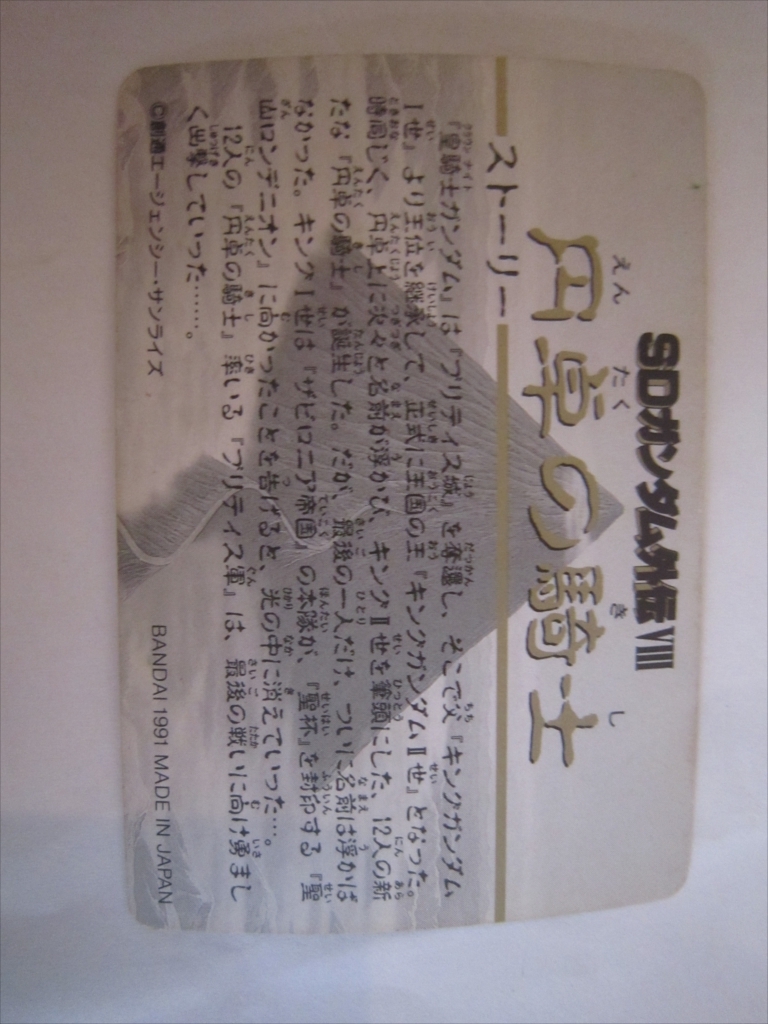 SDガンダム外伝VIII
円卓の騎士
ストーリー
『皇騎士ガンダム』は『ブリティス城』を奪還し、そこで父『キングガンダム
I世』より王位を継承して、正式に王国の王『キングガンダムII世』となった。
時同じく、円卓上に次々と名前が浮かび、キングII世を筆頭にした、12人の新
たな『円卓の騎士』が誕生した。だが、最後の一人だけ、ついに名前は浮かば
なかった。キングI世は『ザビロニア帝国』の本隊が、『聖杯』を封印する『聖
山ロンデニオン』に向かったことを告げると、光の中に消えていった…。
12人の『円卓の騎士』率いる『ブリティス軍』は、最後の戦いに向け勇まし
く出撃していった……。
©創通エージェンシー・サンライズ
BANDAI 1991 MADE IN JAPAN